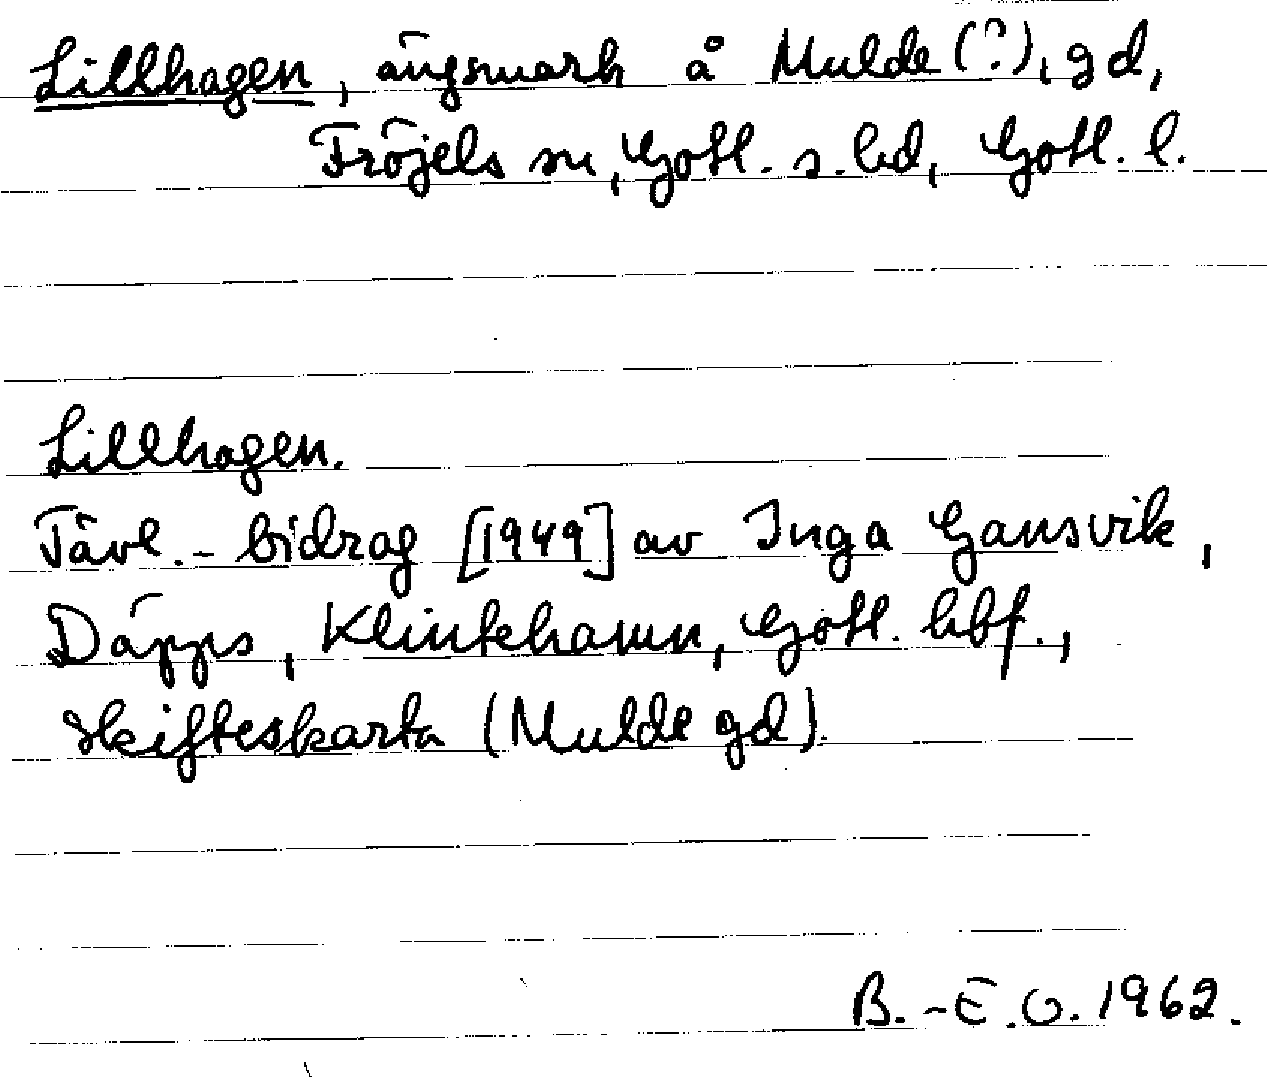 Lillhagen, ängsmark å Mulde (?), gd,
Fröjels sn, Gotl. s. hd, Gotl. l.
Lillhagen.
Tävl.-bidrag [1949] av Inga Gansvik,
Däpps, Klintehamn, Gotl. hbf.,
skifteskarta (Mulde gd).
B.-E.O. 1962.